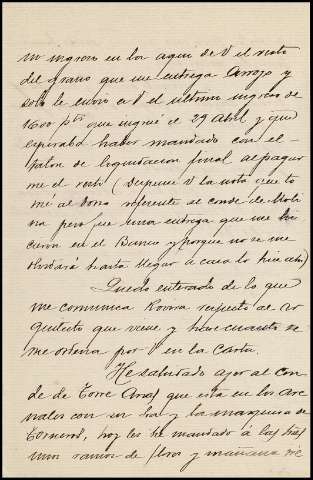 mi ingreso en la aquí de V el resto
del grano que me entrega Arroyo y
solo le envio a V el ultimo ingreso de
1600 pts que ingresé el 29 Abril y que
esperaba haber mandado con el
talon de liquidacion final al pagar
me el resto (Dispense V la nota que to
mé al dorso referente al conde de Moli
na pero fue una entrega que me hi
cieron en el Banco y porque no se me
olvidará hasta llegar a casa lo hice ahi)
Quedo enterado de lo que
me comunica Rovira respecto al ar
quitecto que viene y haré cuanto se
me ordena por V en la Carta.
He saludado ayer al con
de de Torre Arias que esta en los Are
nales con su hija y la marquesa de
hoy les he mandado á las hijas
unos ramos de flores y mañana iré